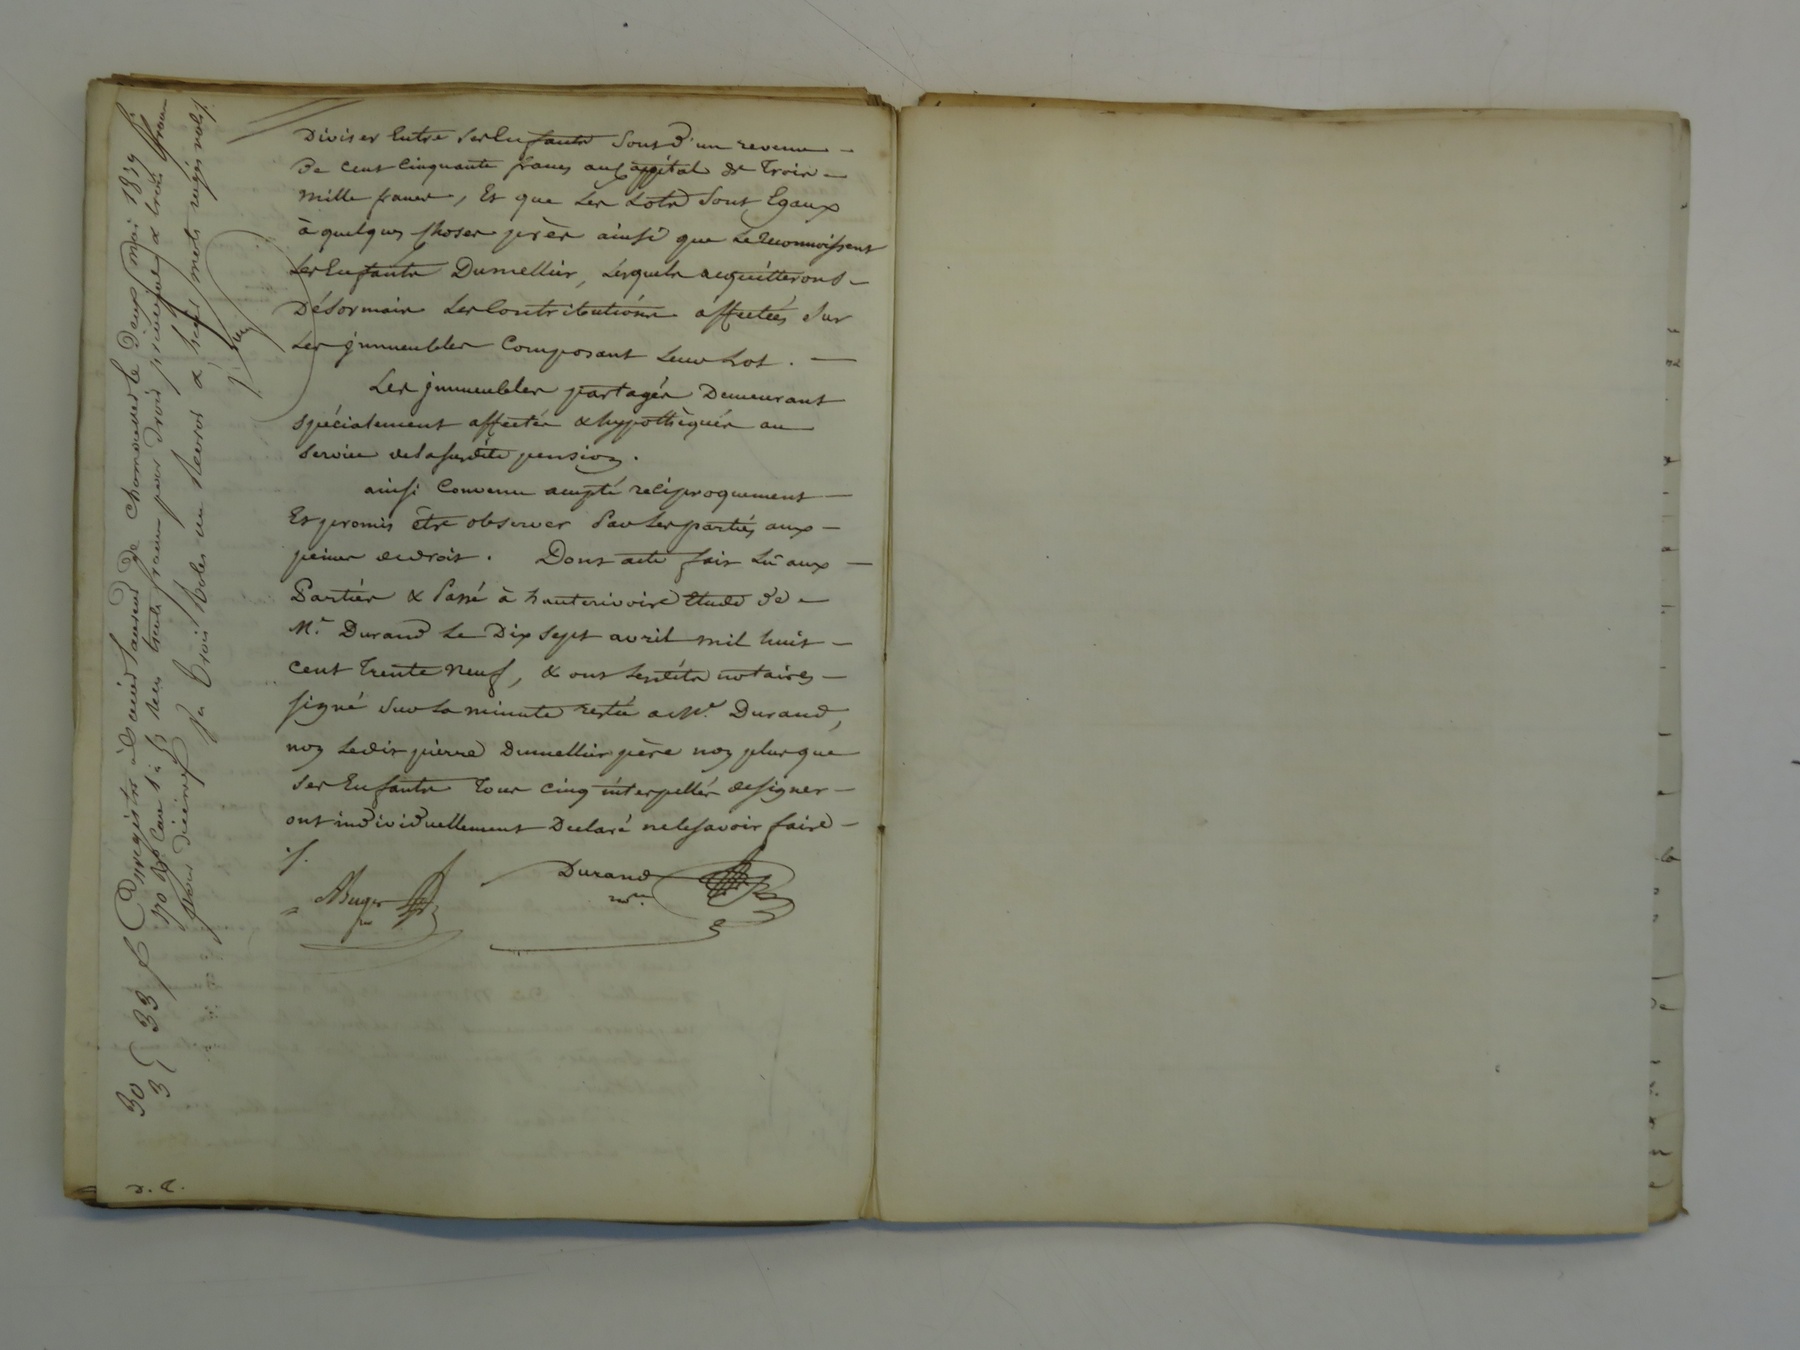 Diviser Entre ses Enfants sont d'un revenu —
De cent Cinquante francs au Cappital de Trois —
mille francs, Et que Les Lots sont Egaux
à quelques choses près ainsi que Le reconnoissent
Les Enfants Dumellier, Lesquels acquitterons —
Désormais Les Contributions affectées sur
Les jmmeubles Composant Leur Lot. —
Les jmmeubles partagés Demeurant
spécialement affectés & hypothéqués au
service de la susdite pension.
ainsi Convenu accepté reciproquement —
Et promis être observer Par Les parties aux —
peines de droit. Dont acte fait Lû aux —
Parties & Passé à hauterivoire Etude de —
Me. Durand Le Dix Sept avril mil huit —
cent Trente Neuf, & ont Lesdits notaires —
signé sur La minute restée a Me. Durand,
non Ledit pierre Dumellier père non plus que
ses Enfants Tous cinq interpellés de signer —
ont individuellement Declaré ne le savoir faire —
./.
Durand
nre.
Enregistré à St Laurent de Chamousset le Deux mai 1839 f°
170 Ro Case 1 à
trente francs pour droit principal & trois francs
pour dixième
trois Roles un Renvoi & mots rayés nuls ./.
30
3
33 f
D. R.